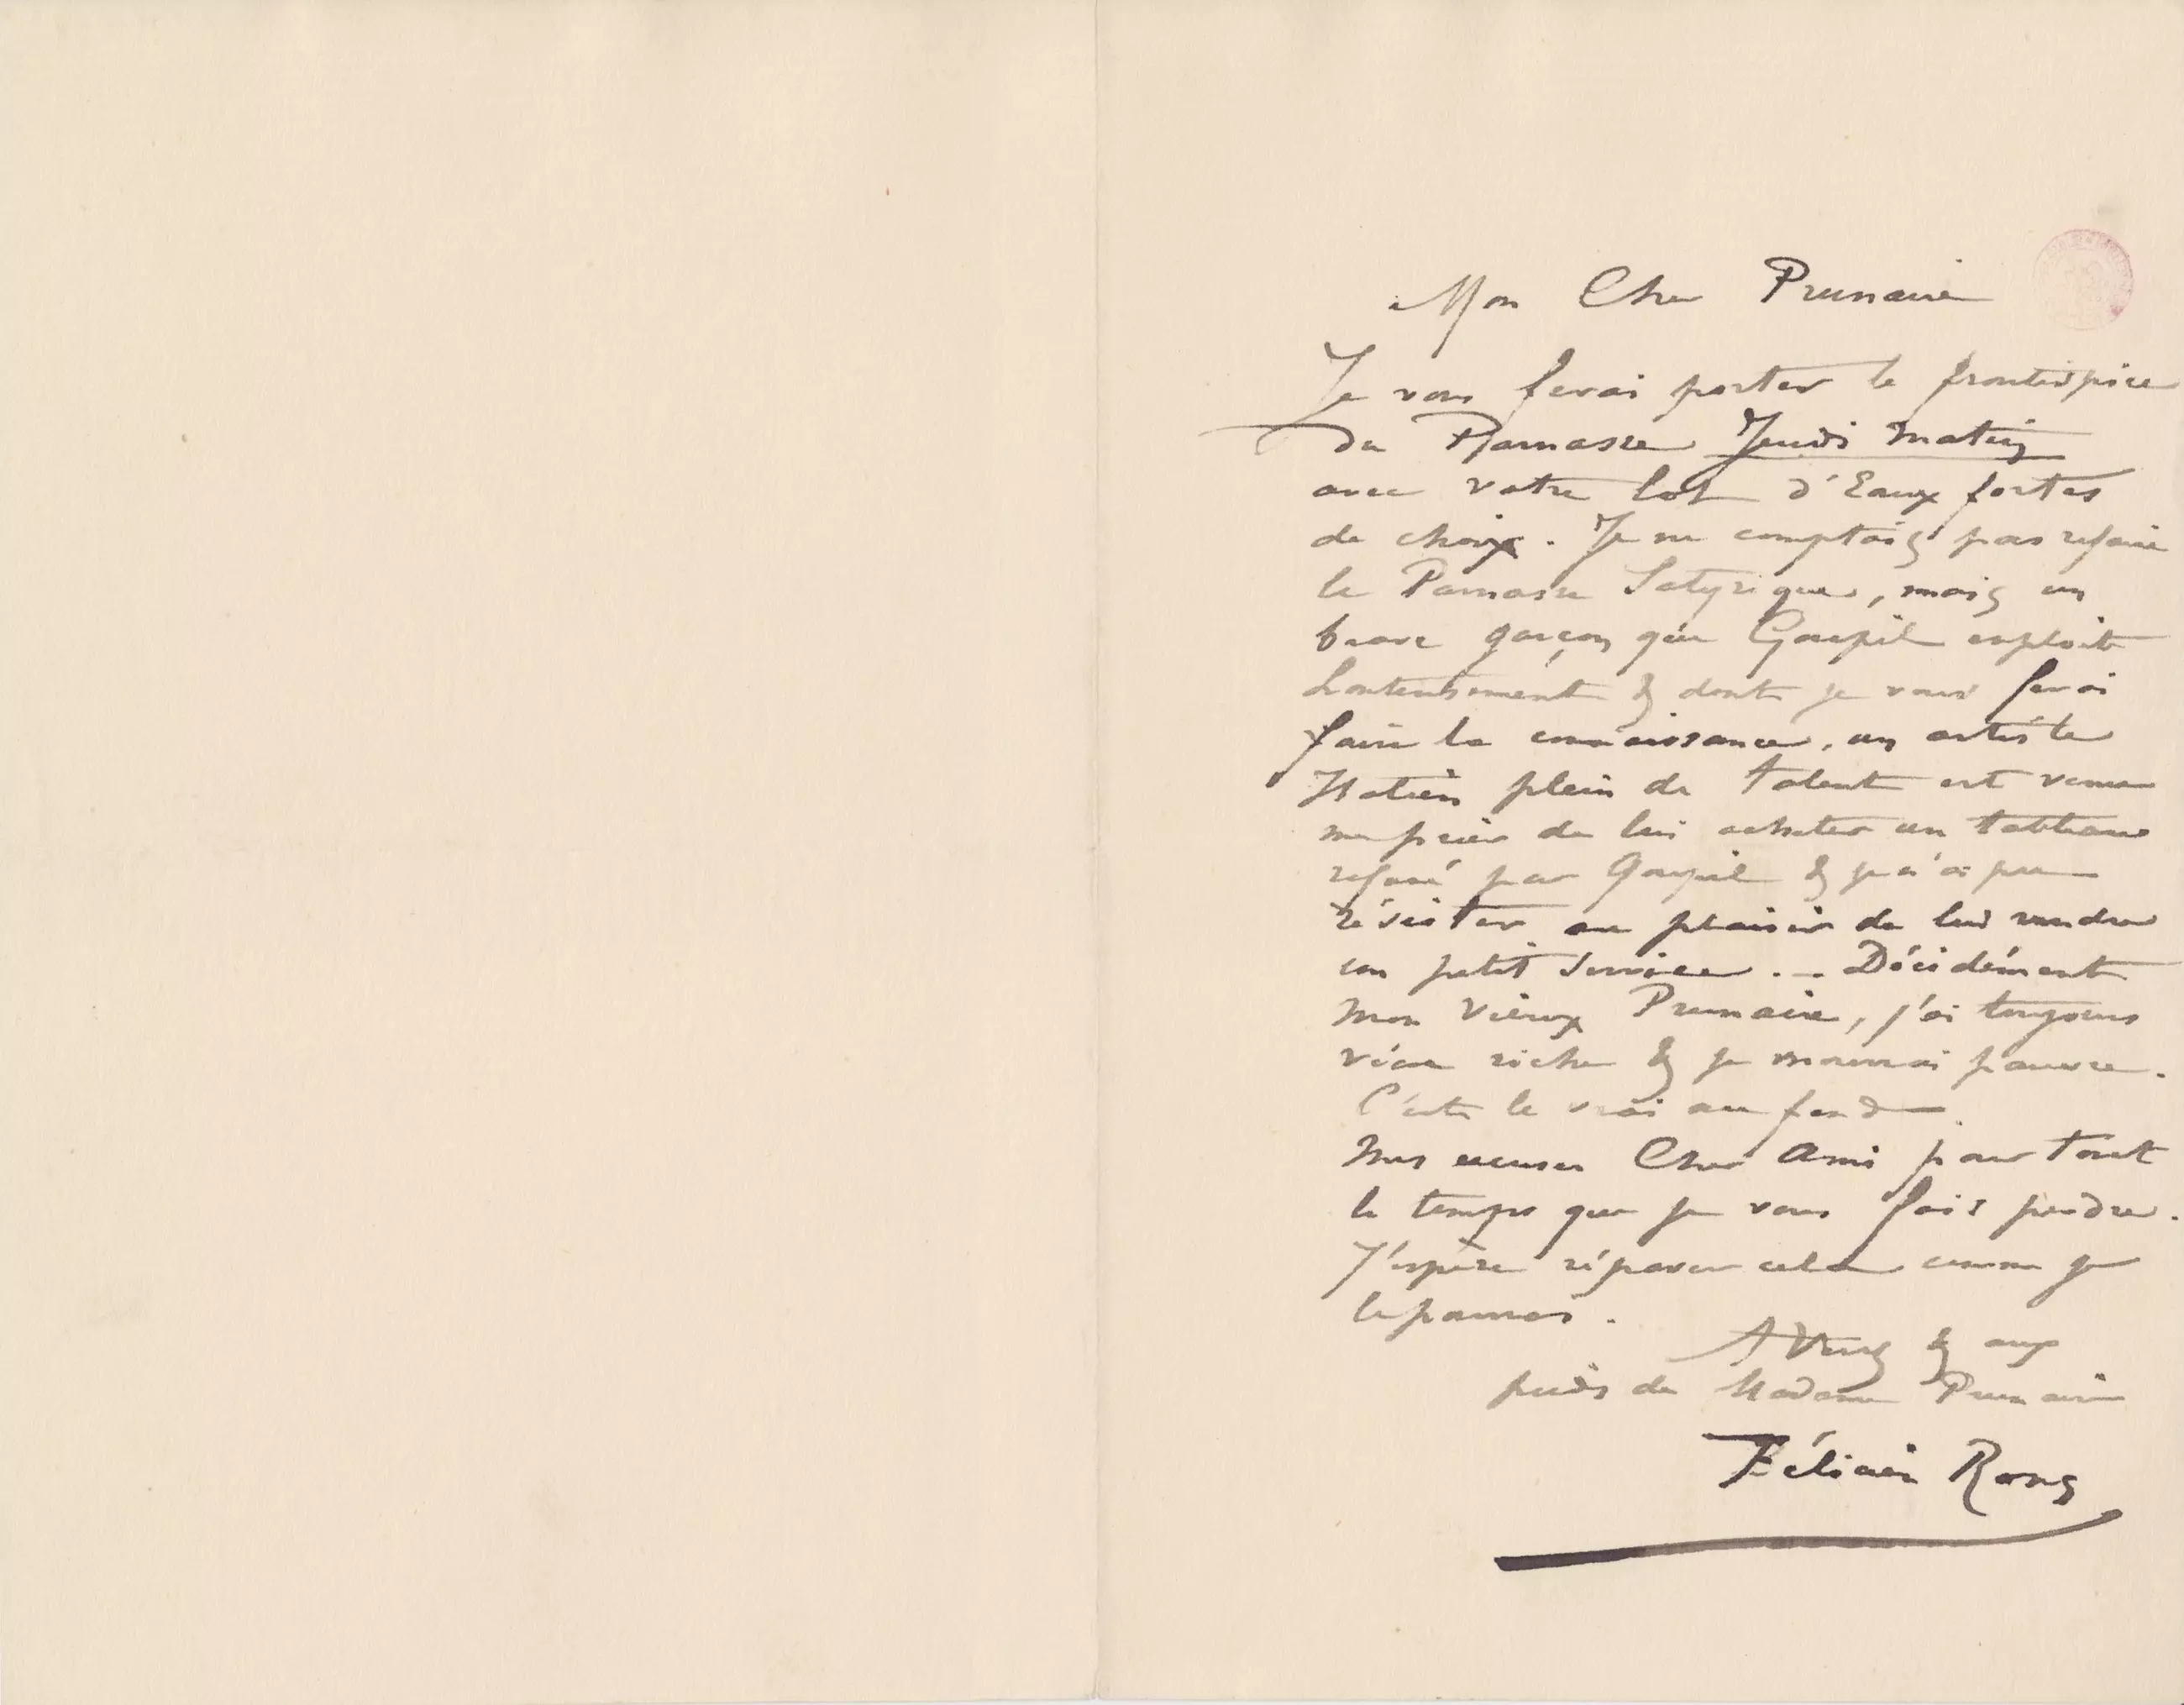 Mon Cher Prunaire
Je vous ferai porter le frontispice
du Parnasse Jeudi matin
avec votre lot d'Eaux fortes
de choix. Je ne comptais pas refaire
le Parnasse Satyrique, mais un
brave garçon que Goupil exploite
honteusement & dont je vous ferai
faire la connaissance, un artiste
Italien plein de talent est venu
me prier de lui acheter un tableau
refusé par Goupil & je n'ai pu
résister au plaisir de lui rendre
un petit service . _ Décidément
mon vieux Prunaire, j'ai toujours
vécu riche & je mourrai pauvre.
C'est le vrai au fond
Mes excuses Cher Ami pour tout
le temps que je vous fais perdre.
J'espère réparer cela comme je
le pourrai.
A Vous & aux
pieds de Madame Prunaire
Félicien Rops